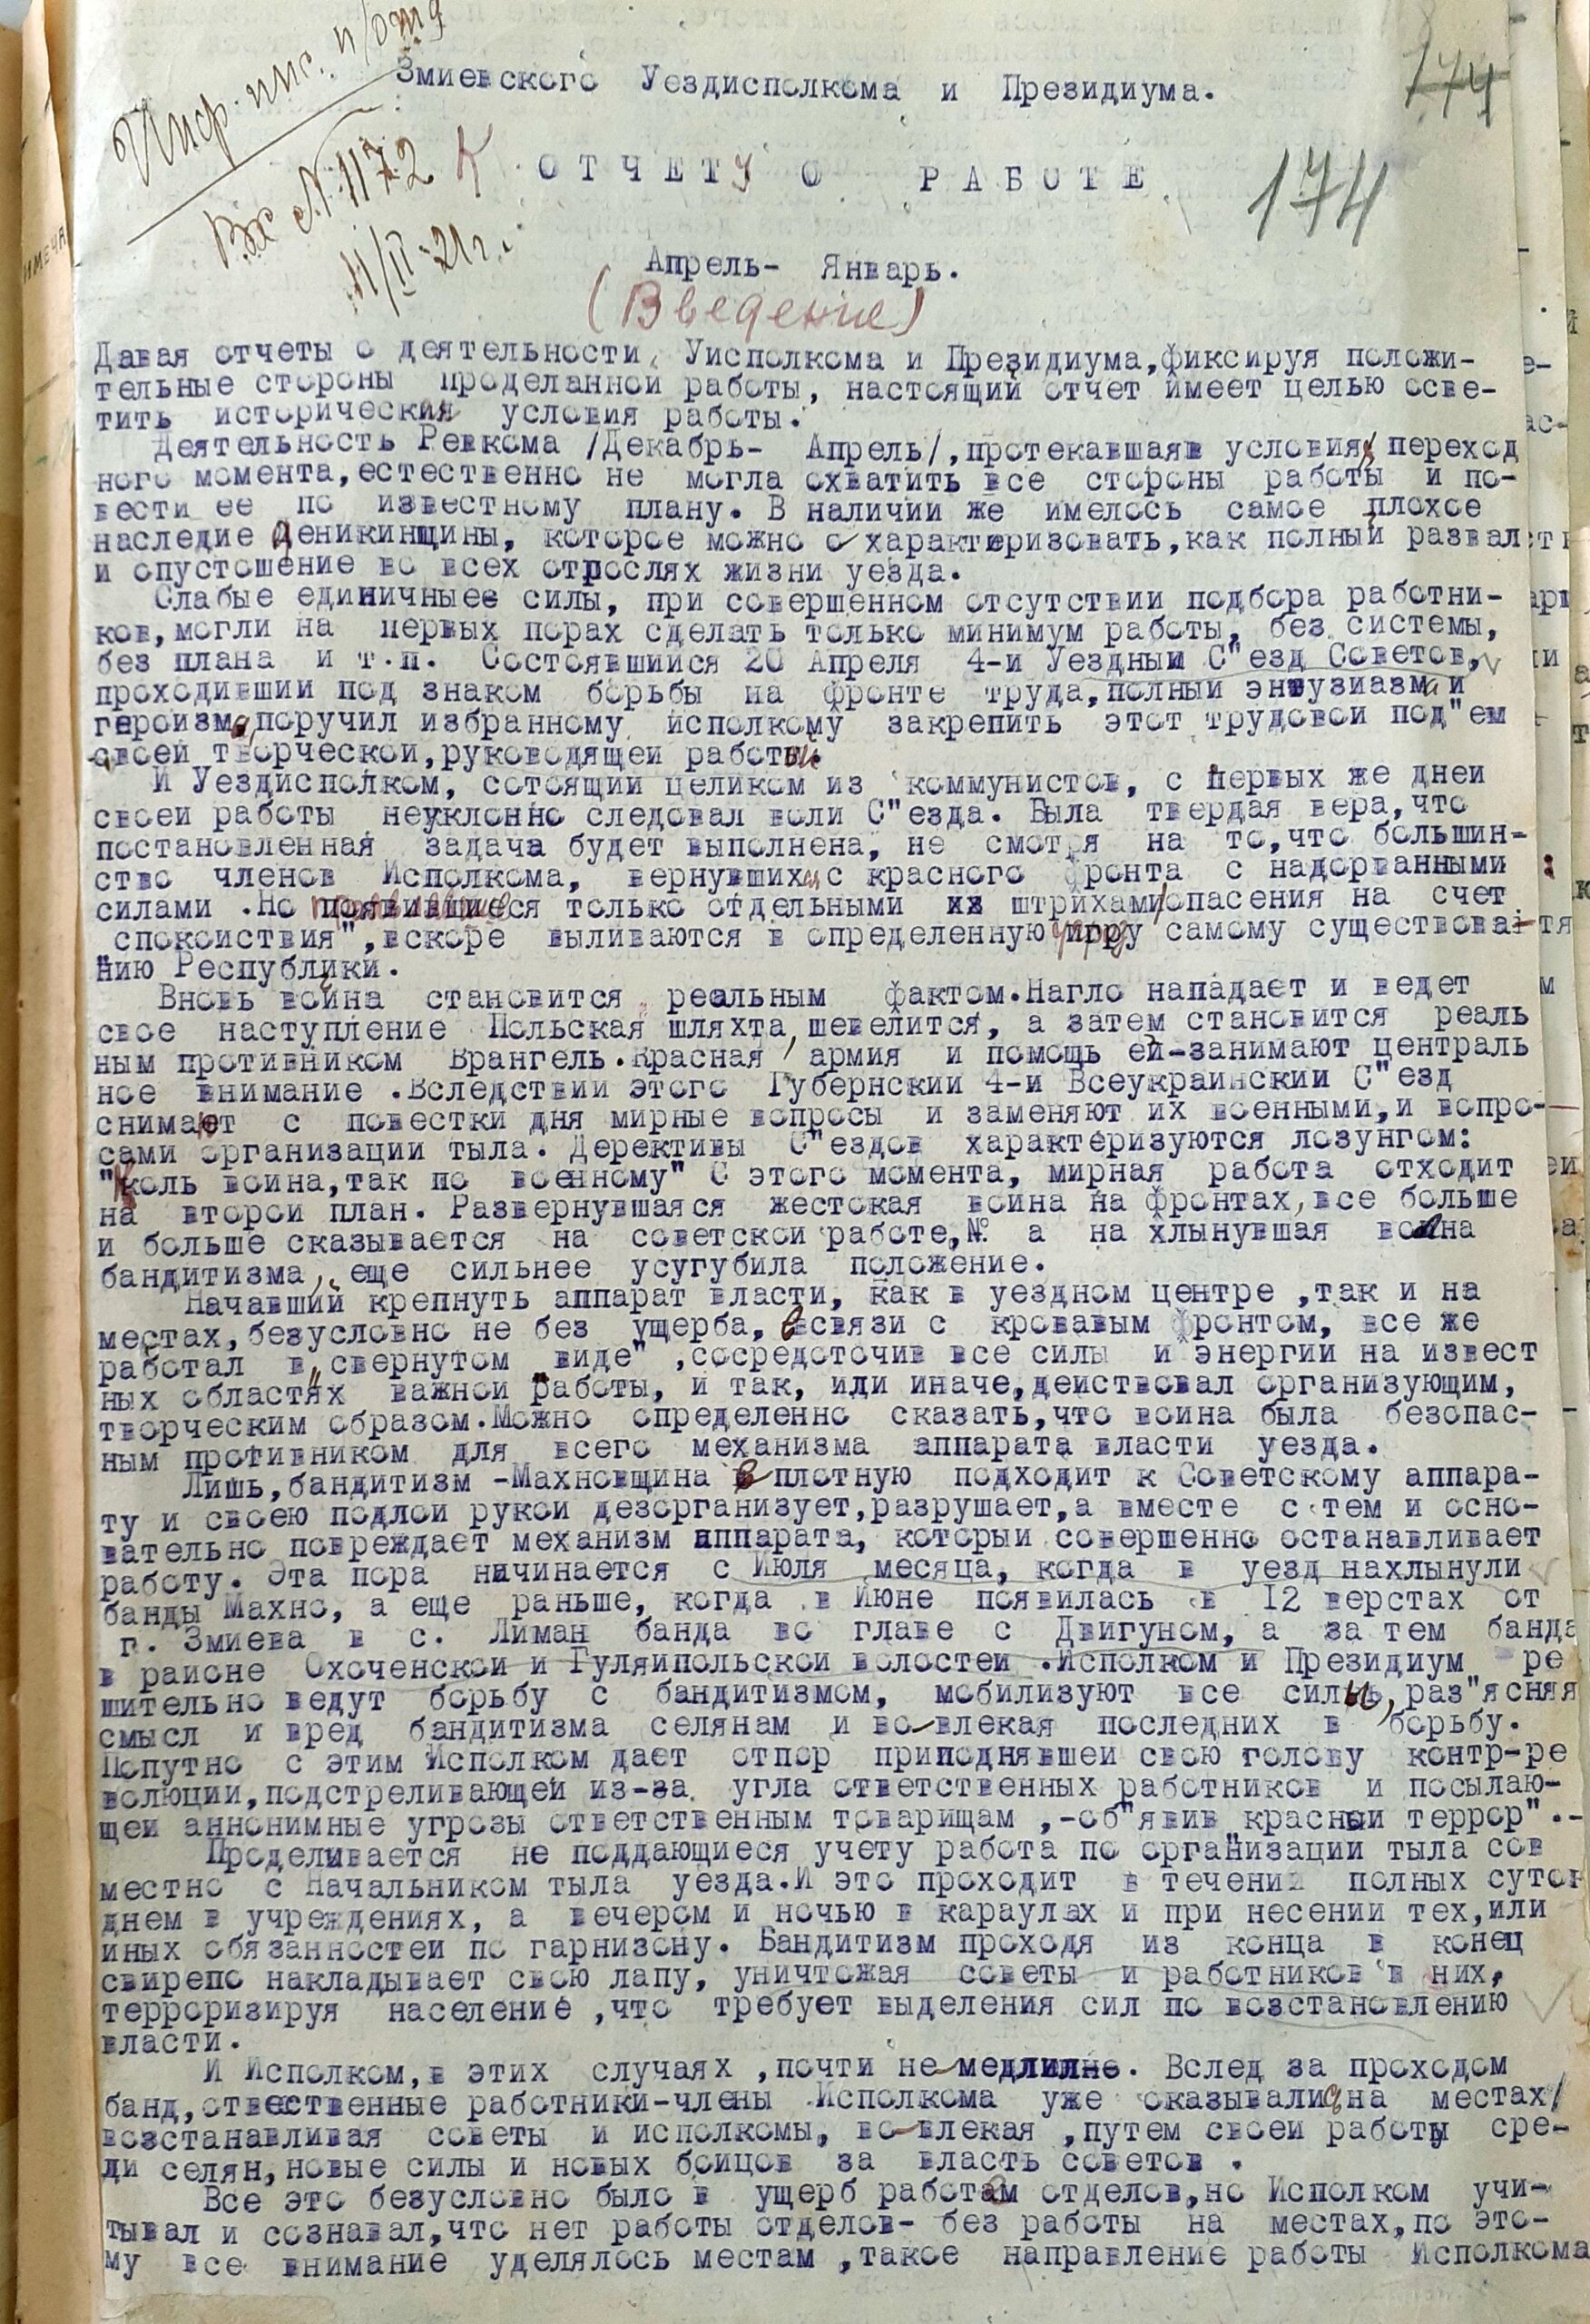 Инф. инс. п/отд
Вх № 1172
11/II-21 г.
174
174
Змиевского Уездисполкома и Президиума.
К ОТЧЕТУ О РАБОТЕ
Апрель- Январь.
(Введение)
Давая отчеты о деятельности Уисполкома и Президиума,фиксируя положи-
тельные стороны проделанной работы, настоящий отчет имеет целью осве-
тить исторические условия работы.
Деятельность Ревкома /Декабрь- Апрель/,протекавшаяв условиях переход
ного момента,естественно не могла охватить все стороны работы и по-
вести ее по известному плану. В наличии же имелось самое плохое
наследие Деникинщины, которое можно охарактиризовать,как полный развал
и опустошение во всех отрослях жизни уезда.
Слабые единичные силы, при совершенном отсутствии подбора работни-
ков,могли на первых порах сделать только минимум работы, без системы,
без плана и т.п. Состоявшийся 20 Апреля 4-й Уездный С"езд Советов,
проходивший под знаком борьбы на фронте труда,полный энтузиазма и
героизма,поручил избранному исполкому закрепить этот трудовой под"ем
своей творческой,руководящей работой.
И Уездисполком, сотоящий целиком из коммунистов, с первых же дней
своей работы неуклонно следовал воли С"езда. Была твердая вера,что
постановленная задача будет выполнена, не смотря на то,что большин-
ство членов Исполкома, вернувшихся с красного фронта с надорванными
силами .Но появившиеся только отдельными штрихами опасения на счет
"спокойствия",вскоре выливаются в определенную угрозу самому существова-
нию Республики.
Вновь война становится реальным фактом.Нагло нападает и ведет
свое наступление Польская шляхта,шевелится, а затем становится реаль
ным противником Врангель.Красная армия и помощь ей-занимают централь
ное внимание .Вследствии этого Губернский 4-й Всеукраинский С"езд
снимают с повестки дня мирные вопросы и заменяют их военными,и вопро-
сами организации тыла. Дерективы С"ездов характеризуются лозунгом:
"Коль война,так по военному" С этого момента, мирная работа отходит
на второй план. Развернувшаяся жестокая война на фронтах,все больше
и больше сказывается на советской работе,№ а на хлынувшая волна
бандитизма, еще сильнее усугубила положение.
Начавший крепнуть аппарат власти, как в уездном центре ,так и на
местах,безусловно не без ущерба, в связи с кровавым фронтом, все же
работал в "свернутом виде" ,сосредоточив все силы и энергии на извест
ных областях важной работы, и так, или иначе,действовал организующим,
творческим образом.Можно определенно сказать,что война была безопас-
ным противником для всего механизма аппарата власти уезда.
Лишь,бандитизм -Махновщина вплотную подходит к Советскому аппара-
ту и своею подлой рукой дезорганизует,разрушает,а вместе с тем и осно-
вательно повреждает механизм аппарата, который совершенно останавливает
работу. Эта пора начинается с Июля месяца, когда в уезд нахлынули
банды Махно, а еще раньше, когда в Июне появилась в 12 верстах от
г. Змиева в с. Лиман банда во главе с Двигуном, а за тем банда
в районе Охоченской и Гуляйпольской волостей .Исполком и Президиум ре
шительно ведут борьбу с бандитизмом, мобилизуют все силы,раз"ясняя
смысл и вред бандитизма селянам и вовлекая последних в борьбу.
Попутно с этим Исполком дает отпор приподнявшей свою голову контр-ре
волюции,подстреливающей из-за угла ответственных работников и посылаю-
щей аннонимные угрозы ответственным товарищам ,-об"явив "красный террор".-
Проделывается не поддающиеся учету работа по организации тыла сов
местно с Начальником тыла уезда.И это проходит в течении полных суток
днем в учреждениях, а вечером и ночью в караулах и при несении тех,или
иных обязанностей по гарнизону. Бандитизм проходя из конца в конец
свирепо накладывает свою лапу, уничтожая советы и работников в них,
терроризируя население ,что требует выделения сил по возстановлению
власти.
И Исполком,в этих случаях ,почти не медлил. Вслед за проходом
банд,отвественные работники-члены Исполкома уже оказывались на местах/
возстанавливая советы и исполкомы, вовлекая ,путем своей работы сре-
ди селян,новые силы и новых бойцов за власть советов .
Все это безусловно было в ущерб работам отделов,но Исполком учи-
тывал и сознавал,что нет работы отделов- без работы на местах,по это-
му все внимание уделялось местам ,такое направление работы Исполкома